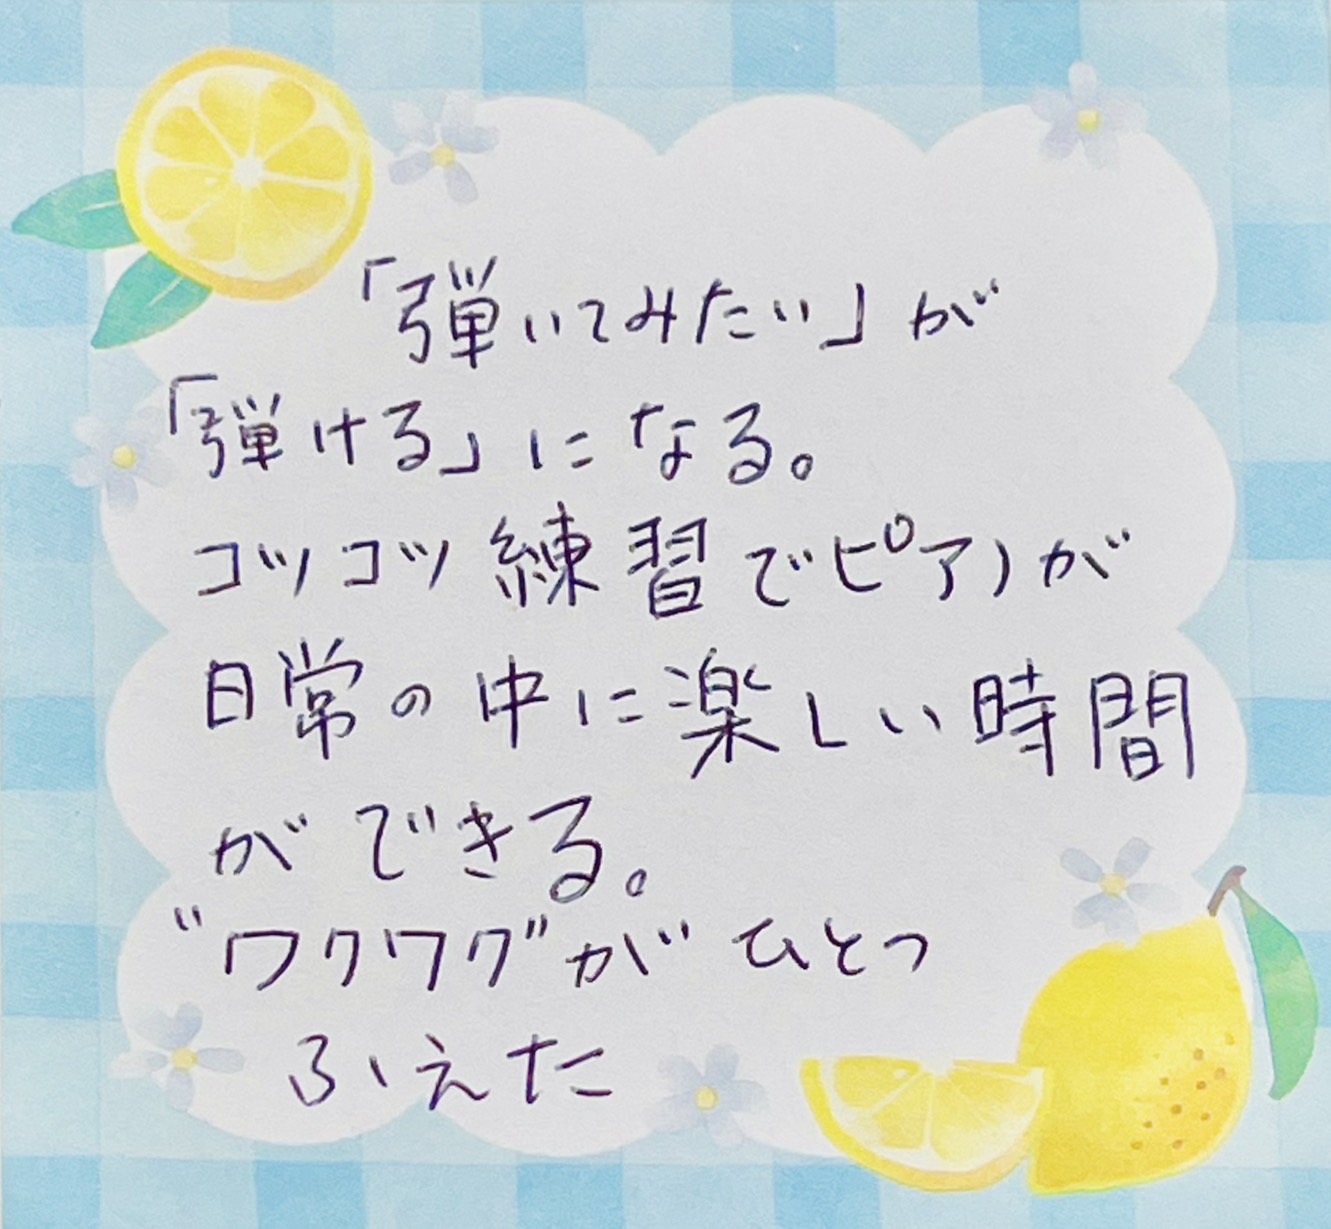 「弾いてみたい」が
「弾ける」になる。
コツコツ練習でピアノが
日常の中に楽しい時間
ができる。
"ワクワク"がひとつ
ふえた